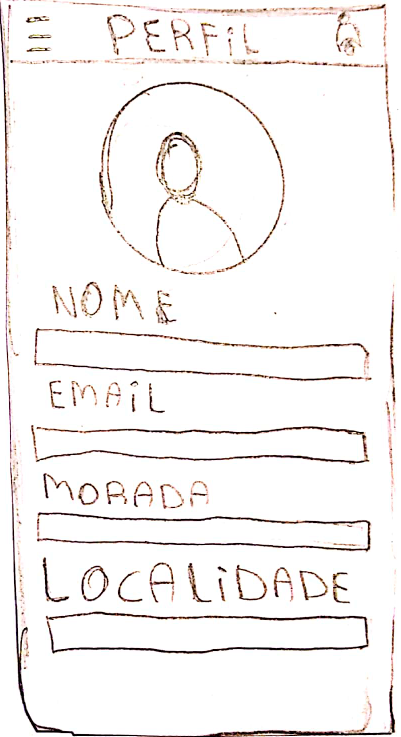 PERFiL
NOME
EMAiL
MORADA
LOCALiDADE